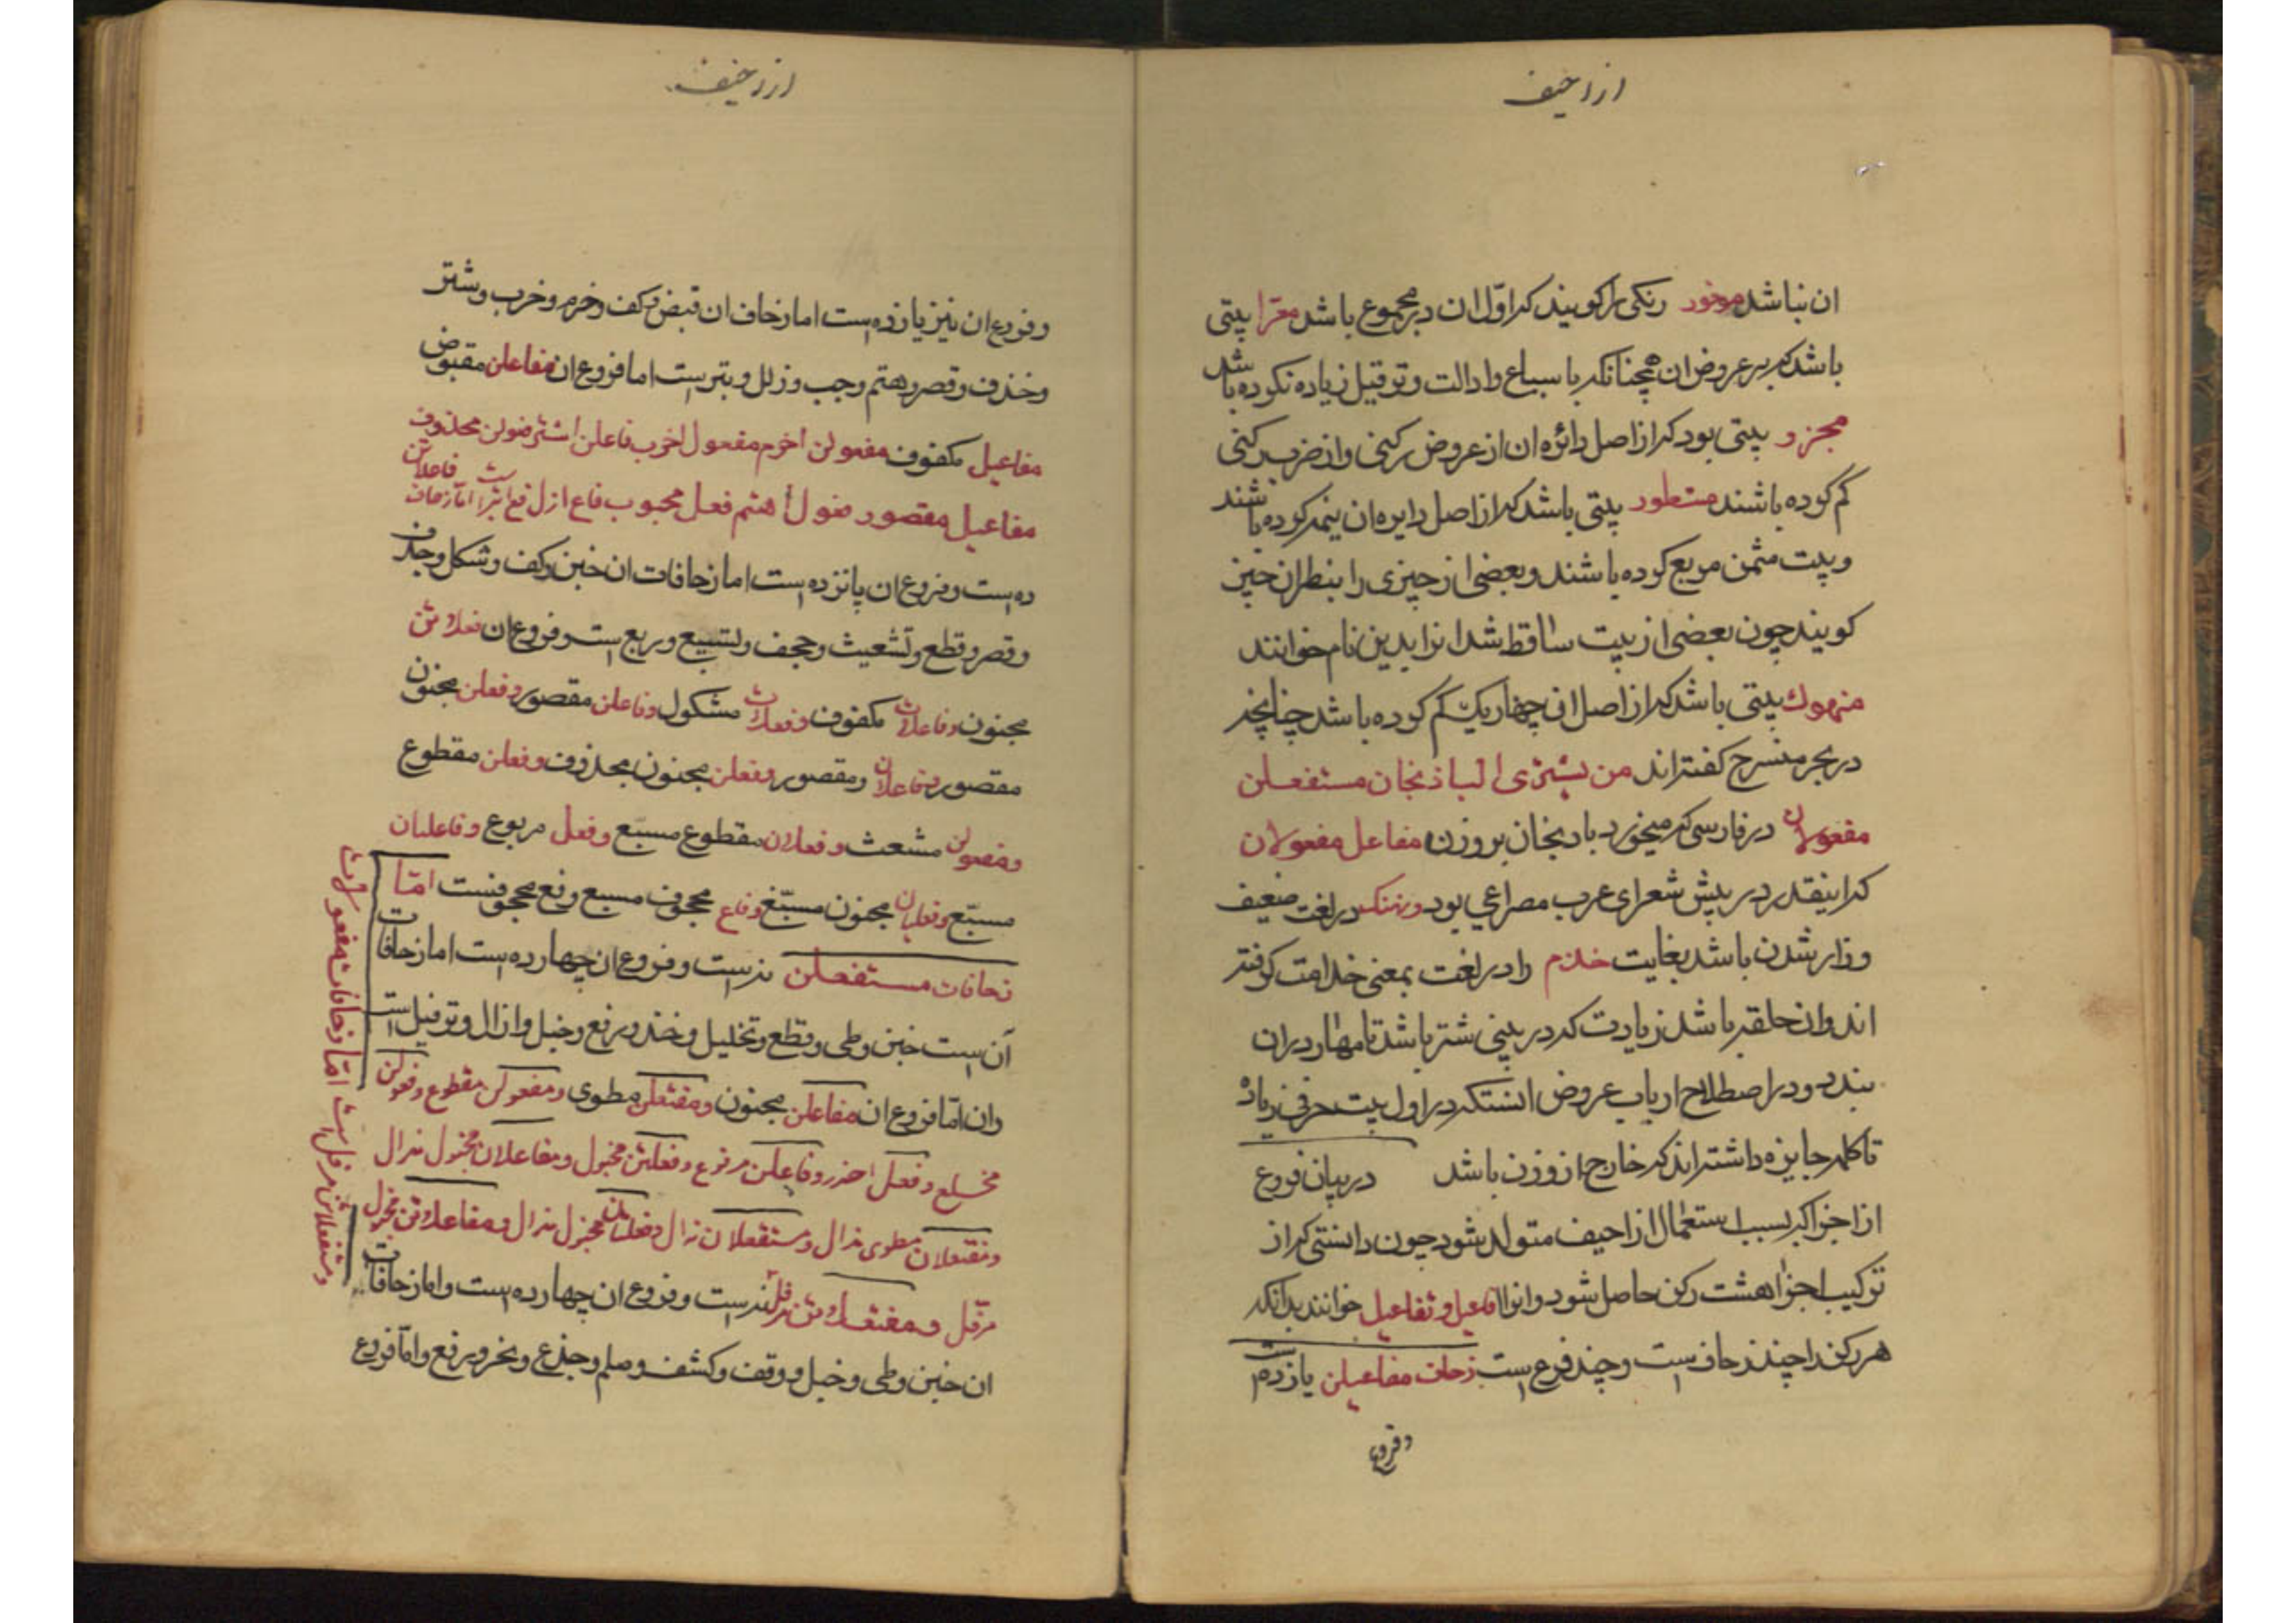 ازاحیف
ان نباشد موفور رنکی را کویند که اوّل ان در مجموع باشد معرّا بیتی
باشد که بر عروض ان همچنانکه باسباع وادالت وترفیل زیاده نکرده باشد
مجزو بیتی بود که از اصل دائره ان از عروض رکنی واز ضرب رکنی
کم کرده باشند مشطور بیتی باشد که از اصل دایره ان نیمه کرده باشند
وبیت مثمن مربع کرده باشند وبعضی از چیزی را بنطران چیز
کویند چون بعضی از بیت ساقط شد انرا بدین نام خوانند
منهوك بیتی باشد که از اصل ان چهار یك کم کرده باشد چنانچه
در بحر منسرح کفته اند من یشتری الباذنجان مستفعلن
مفعولان در فارسی که میخورد بادنجان بر وزن مفاعل مفعولان
که اینقدر در پیش شعرای عرب مصراعی بود ونهنك در لغت ضعیف
وزار شدن باشد بغایت خذم را در لغت بمعنی خدامت کرفته
اند وان حلقه باشد زیادت که در بینی شتر باشد تا مهار در ان
بندند ودر اصطلاح ارباب عروض انستکه در اول بیت حرفی زیاده
تا کلمه جایزه داشته اند که خارج از وزن باشد در بیان فروع
از اجزا که بسبب استعمال ازاحیف متولد شود چون دانستی که از
ترکیب اجزا هشت رکن حاصل شود وانرا افاعیل وتفاعیل خوانند بدانکه
هر رکن را چند زحاف است وچند فرع است زحاف مفاعیلن یازده است
وفروع
ازاحیف
وفروع ان نیز یازده است اما زحاف ان قبض وکف وخرم وخرب وشتر
وحذف وقصر وهتم وجب وزلل وبتر است اما فروع ان مفاعلن مقبوض
مفاعیل مکفوف مفعولن اخرم مفعول اخرب فاعلن اشتر فعولن محذوف
مفاعیل مقصور فعول اهتم فعل مجبوب فاع ازل فع ابتر است اما زحاف فاعلاتن
ده است وفروع ان پانزده است اما زحافات ان خبن وکف وشکل وحذف
وقصر وقطع وتشعیث وجحف وتسبیع وربع است وفروع ان فعلاتن
مجنون وفاعلات مکفوف وفعلات مشکول وفاعلن مقصور وفعلن مجنون
مقصور وفاعلان ومقصور وفعلن مجنون محذوف وفعلن مقطوع
ومفعولن مشعث وفعلان مقطوع مسبّع وفعل مربوع وفاعلیان
مسبّع وفعلیان مجنون مسبّغ وفاع مجحوف مسبع وفع مجحوفست امّا
زحافات مستفعلن نه است وفروع ان چهارده است اما زحافات
آن است خبن وطی وقطع وتخلیل وحذذ ورفع وخبل واذال وترفیل است
وان امّا فروع ان مفاعلن مجنون ومفتعلن مطوی ومفعولن مقطوع وفعولن
مخلع وفعل احذ وفاعلن مرفوع وفعلتن مخبول ومفاعلان مخبول مذال
ومفتعلان مطوی مذال ومستفعلان مذال وفعلتان مخبول مذال ومفاعلاتن مخبول
مرفّل ومفتعلاتن مرفل نه است وفروع ان چهارده است واما زحافات
ان خبن وطی وخبل ووقف وکشف وصلم وجذع ونحر ورفع وامّا فروع
ومستفعلاتن مرفل است امّا زحافات مفعولات